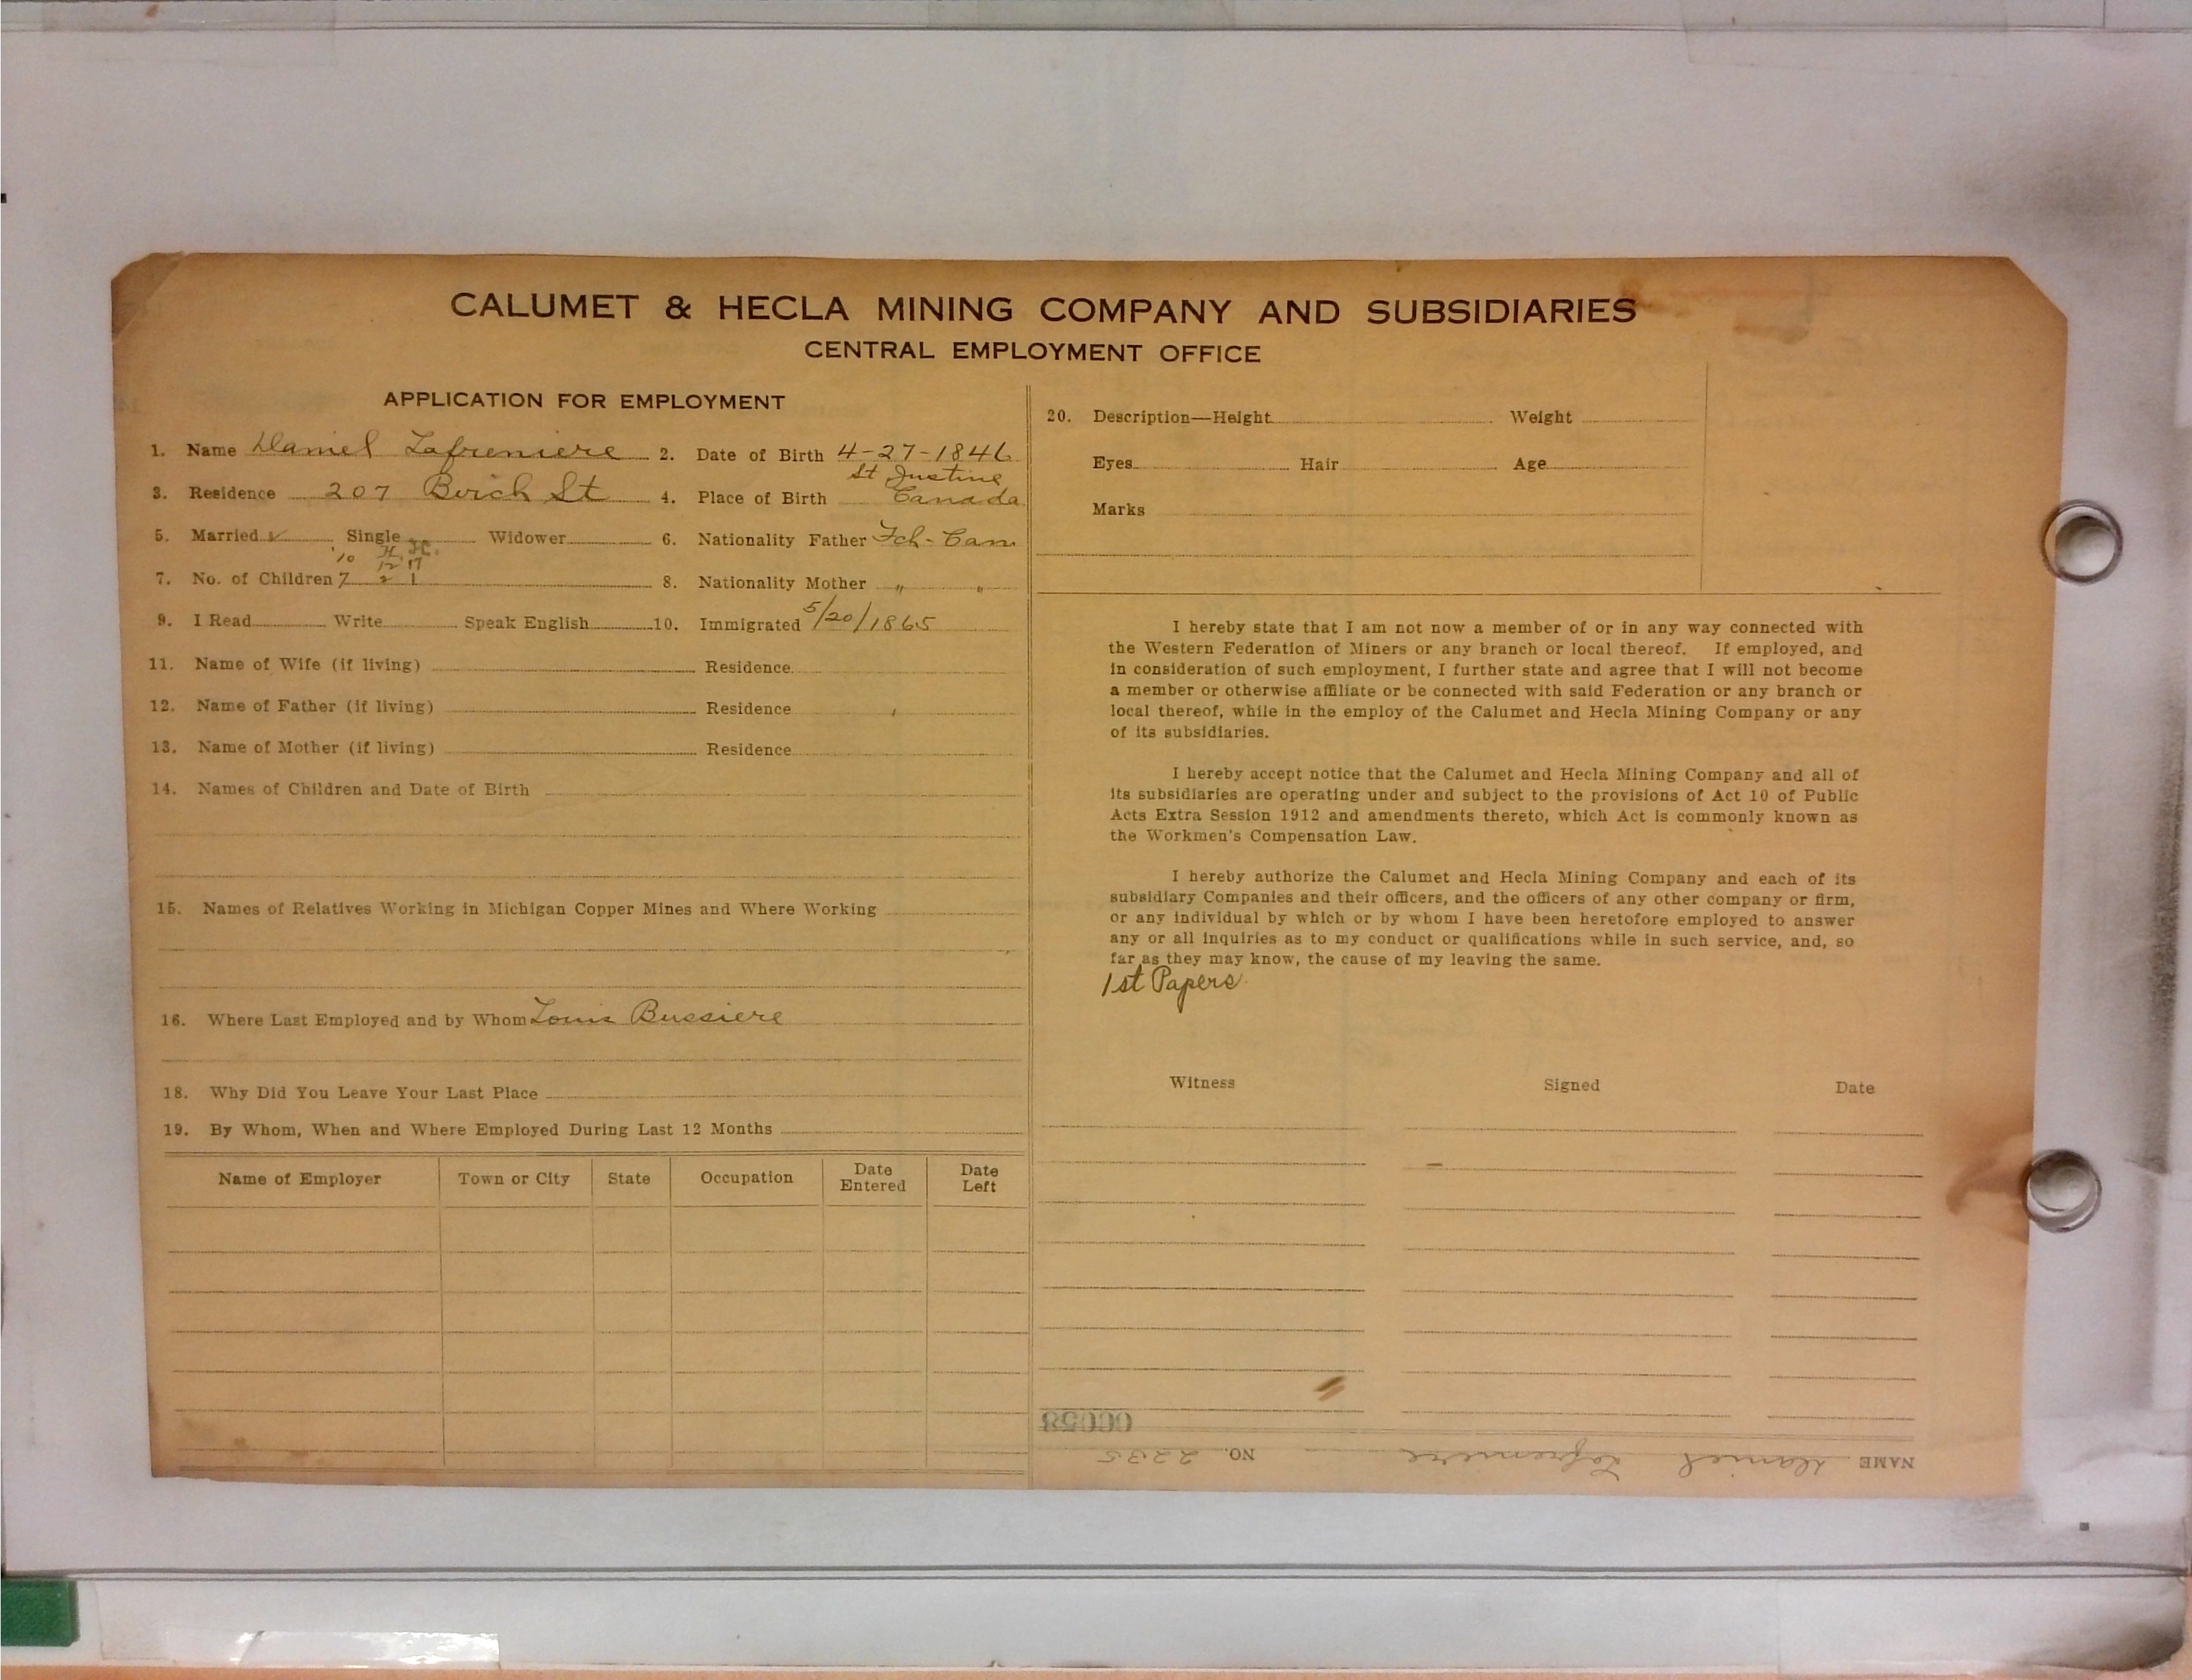 CALUMET & HECLA MINING COMPANY AND SUBSIDIARIES
CENTRAL EMPLOYMENT OFFICE
APPLICATION FOR EMPLOYMENT
1. Name Daniel Lafreniere 2. Date of Birth 4-27-1846
St Justine
3. Residence 207 Birch St 4. Place of Birth Canada
5. Married ✓ Single Widower 6. Nationality Father Fch-Can
'10
12 17
7. No. of Children 7 2 1 8. Nationality Mother " "
9. I Read Write Speak English 10. Immigrated 5/20/1865
11. Name of Wife (if living) Residence
12. Name of Father (if living) Residence
13. Name of Mother (if living) Residence
14. Names of Children and Date of Birth
15. Names of Relatives Working in Michigan Copper Mines and Where Working
16. Where Last Employed and by Whom Louis Bussiere
18. Why Did You Leave Your Last Place
19. By Whom, When and Where Employed During Last 12 Months
Name of Employer Town or City State Occupation Date Entered Date Left
20. Description—Height Weight
Eyes Hair Age
Marks
I hereby state that I am not now a member of or in any way connected with
the Western Federation of Miners or any branch or local thereof. If employed, and
in consideration of such employment, I further state and agree that I will not become
a member or otherwise affiliate or be connected with said Federation or any branch or
local thereof, while in the employ of the Calumet and Hecla Mining Company or any
of its subsidiaries.
I hereby accept notice that the Calumet and Hecla Mining Company and all of
its subsidiaries are operating under and subject to the provisions of Act 10 of Public
Acts Extra Session 1912 and amendments thereto, which Act is commonly known as
the Workmen's Compensation Law.
I hereby authorize the Calumet and Hecla Mining Company and each of its
subsidiary Companies and their officers, and the officers of any other company or firm,
or any individual by which or by whom I have been heretofore employed to answer
any or all inquiries as to my conduct or qualifications while in such service, and, so
far as they may know, the cause of my leaving the same.
1st Papers
Witness Signed Date
NAME Daniel Lafreniere NO. 2235